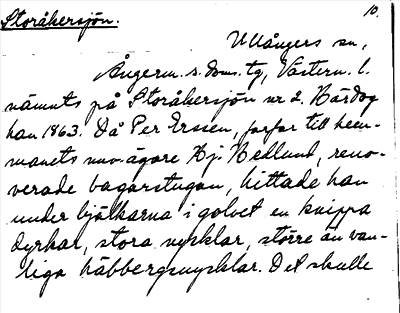 Storåkersjön.
10.
Ullångers sn,
Ångerm. s. doms. tg, Västern. l.
nämnts på Storåkersjön nr 2. Härdog
han 1863. Då Per Ersson, farfar till hem-
manets nuv. ägare Hj. Hedlund, reno-
verade bagarstugan, hittade han
under bjälkarna i golvet en knippa
dyrkar, stora nycklar, större än van-
liga häbbergsnycklar. Det skulle